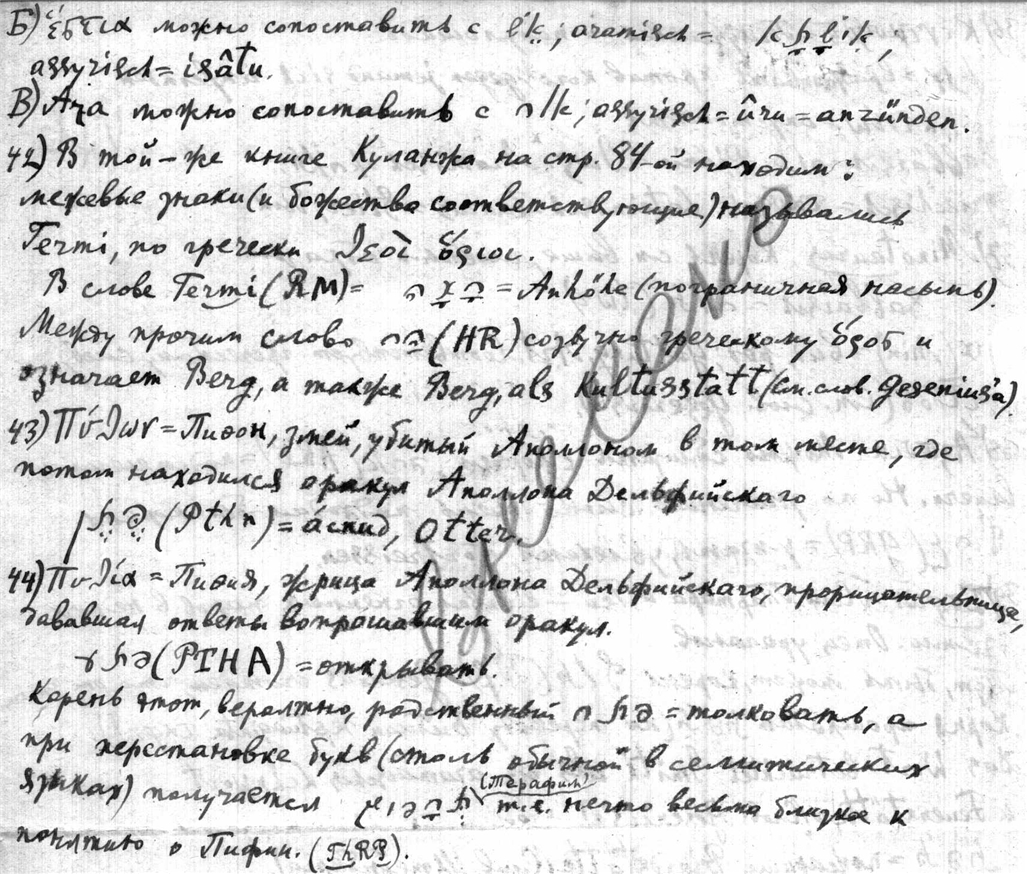 Б) ἑστία можно сопоставить с ; aramäisch =
assyrisch = isâtu.
В) Ara можно сопоставить с ; assyrisch = ûru = anzünden.
42) В той-же книге Куланжа на стр. 84-ой находим:
межевые знаки (и божества соответствующие) назывались
Termi, по гречески θεοὶ ὅριοι.
В слове Termi (RM) = = Anhöhe (пограничная насыпь).
Между прочим слово הר (HR) созвучно греческому ὅρος и
означает Berg, а также Berg, als Kultusstatt (см. слов. Gesenius'a).
43) Πύθων = Пиѳон, змей, убитый Аполлоном в том месте, где
потом находился оракул Аполлона Дельфийскаго
פתן (Pthn) = áспид, Otter.
44) Πυθία = Пиѳия, жрица Аполлона Дельфийскаго, прорицательница,
дававшая ответы вопрошавшим оракул.
(PTHA) = открывать.
Корень этот, вероятно, родственный פתר = толковать, а
при перестановке букв (столь обычной в семитических
языках) получается תרפים (Терафим) т.е. нечто весьма близкое к
понятию о Пифии. (ThRP).